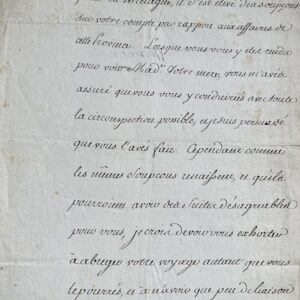 la Bretagne, il s'est élevé des soupçons
sur votre compte par rapport aux affaires de
cette Province. Lorsque vous vous y etes rendu
pour voir Mad.e Votre mere, vous m'aviés
assuré que vous vous y conduiriés avec toute
la circonspection possible, et je suis persuadé
que vous l'avés fait. Cependant comme
les mêmes Soupcons renaissent, et qu'ils
pourroient avoir des Suites désagreables
pour vous, je crois devoir vous exhorter
à abreger votre voyage autant que vous
le pourrés, et à n'avoir que peu de liaison